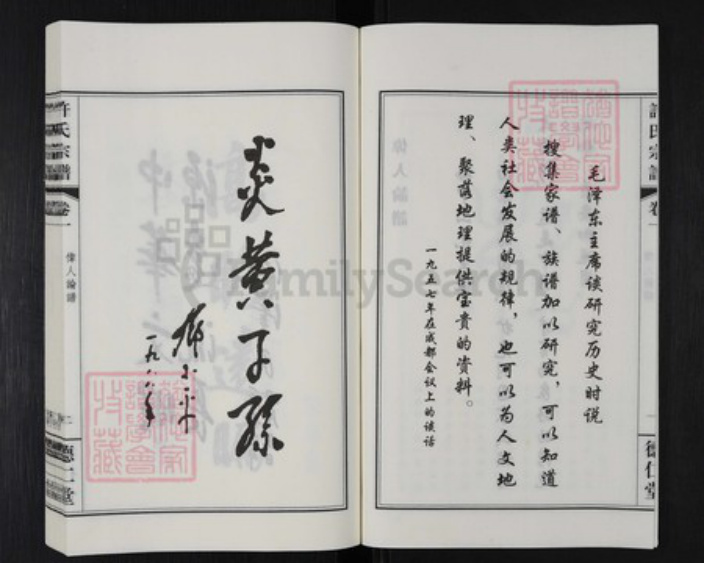 毛泽东主席谈研究历史时说
搜集家谱、族谱加以研究，可以知道
人类社会发展的规律，也可以为人文地
理、聚落地理提供宝贵的资料。
一九五七年在成都会议上的谈话
許氏宗譜
卷一
一
德仁堂
炎黄子孫
邓小平
一九八八年
許氏宗譜
卷一
偉人論譜
二
德仁堂
FamilySearch